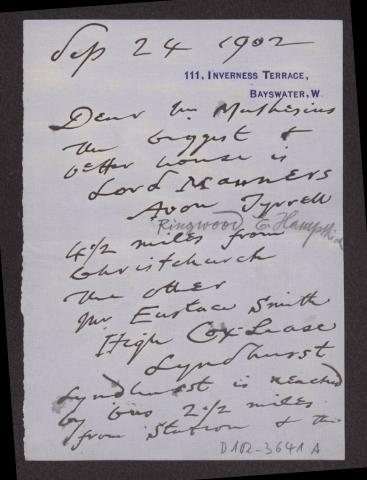 Sep 24 1902
111, INVERNESS TERRACE,
BAYSWATER, W.
Dear Mr Muthesius
The biggest &
better house is
Lord Manners
Avon Tyrrell
Ringwood Hampshire
4 1/2 miles from
Christchurch
The other
Mr Eustace Smith
High Cox-Lease
Lyndhurst
Lyndhurst is reached
by bus 2 1/2 miles
from Station & the
D102-3641 A